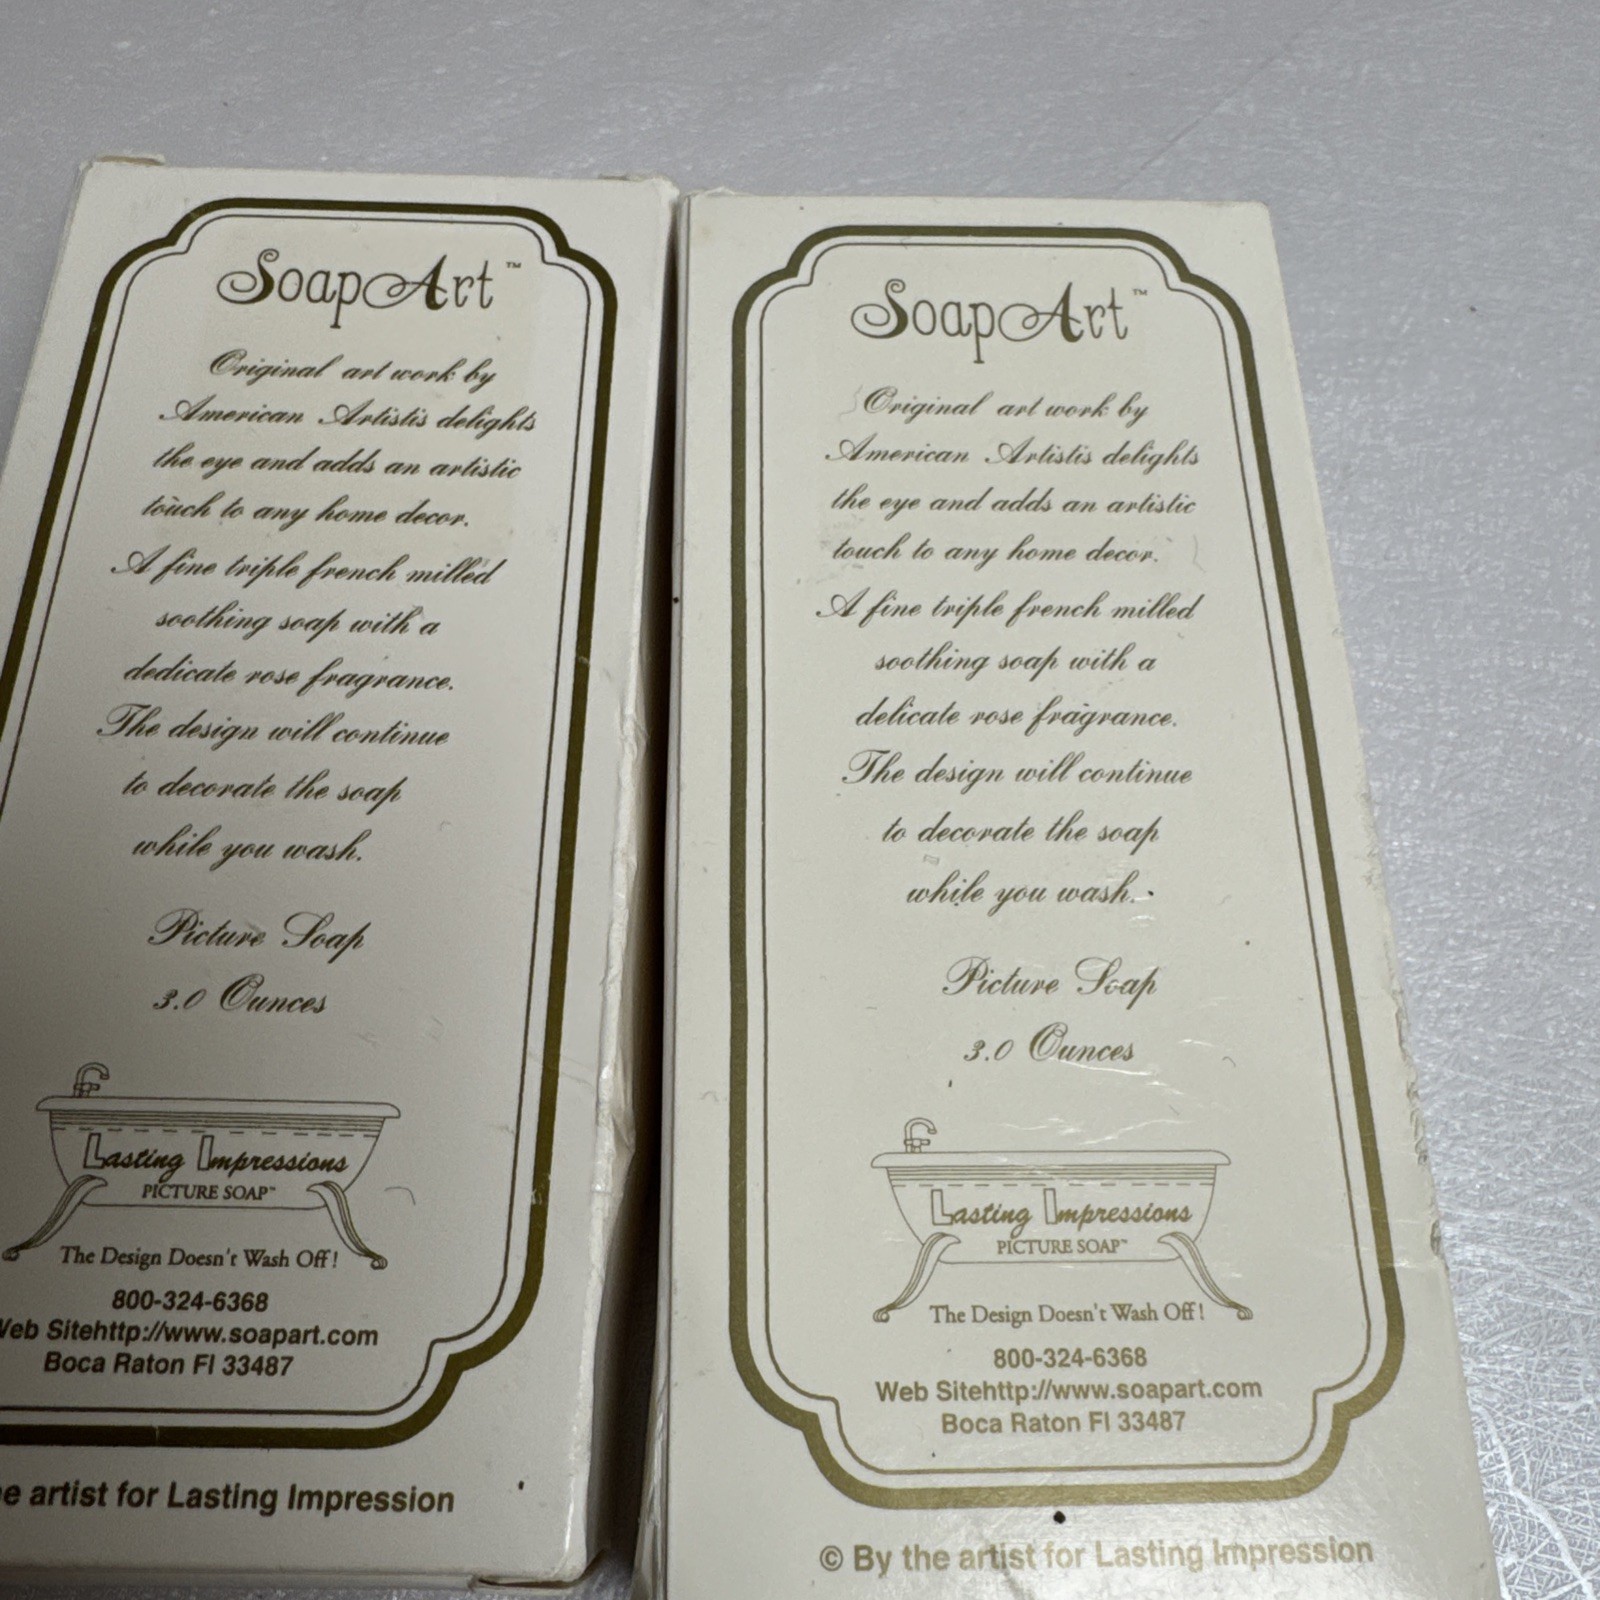 SoapArt™
Original art work by
American Artistis delights
the eye and adds an artistic
touch to any home decor.
A fine triple french milled
soothing soap with a
dedicate rose fragrance.
The design will continue
to decorate the soap
while you wash.
Picture Soap
3.0 Ounces
Lasting Impressions
PICTURE SOAP™
The Design Doesn't Wash Off!
800-324-6368
Web Sitehttp://www.soapart.com
Boca Raton Fl 33487
artist for Lasting Impression
SoapArt™
Original art work by
American Artistis delights
the eye and adds an artistic
touch to any home decor.
A fine triple french milled
soothing soap with a
delicate rose fragrance.
The design will continue
to decorate the soap
while you wash.
Picture Soap
3.0 Ounces
Lasting Impressions
PICTURE SOAP™
The Design Doesn't Wash Off!
800-324-6368
Web Sitehttp://www.soapart.com
Boca Raton Fl 33487
© By the artist for Lasting Impression